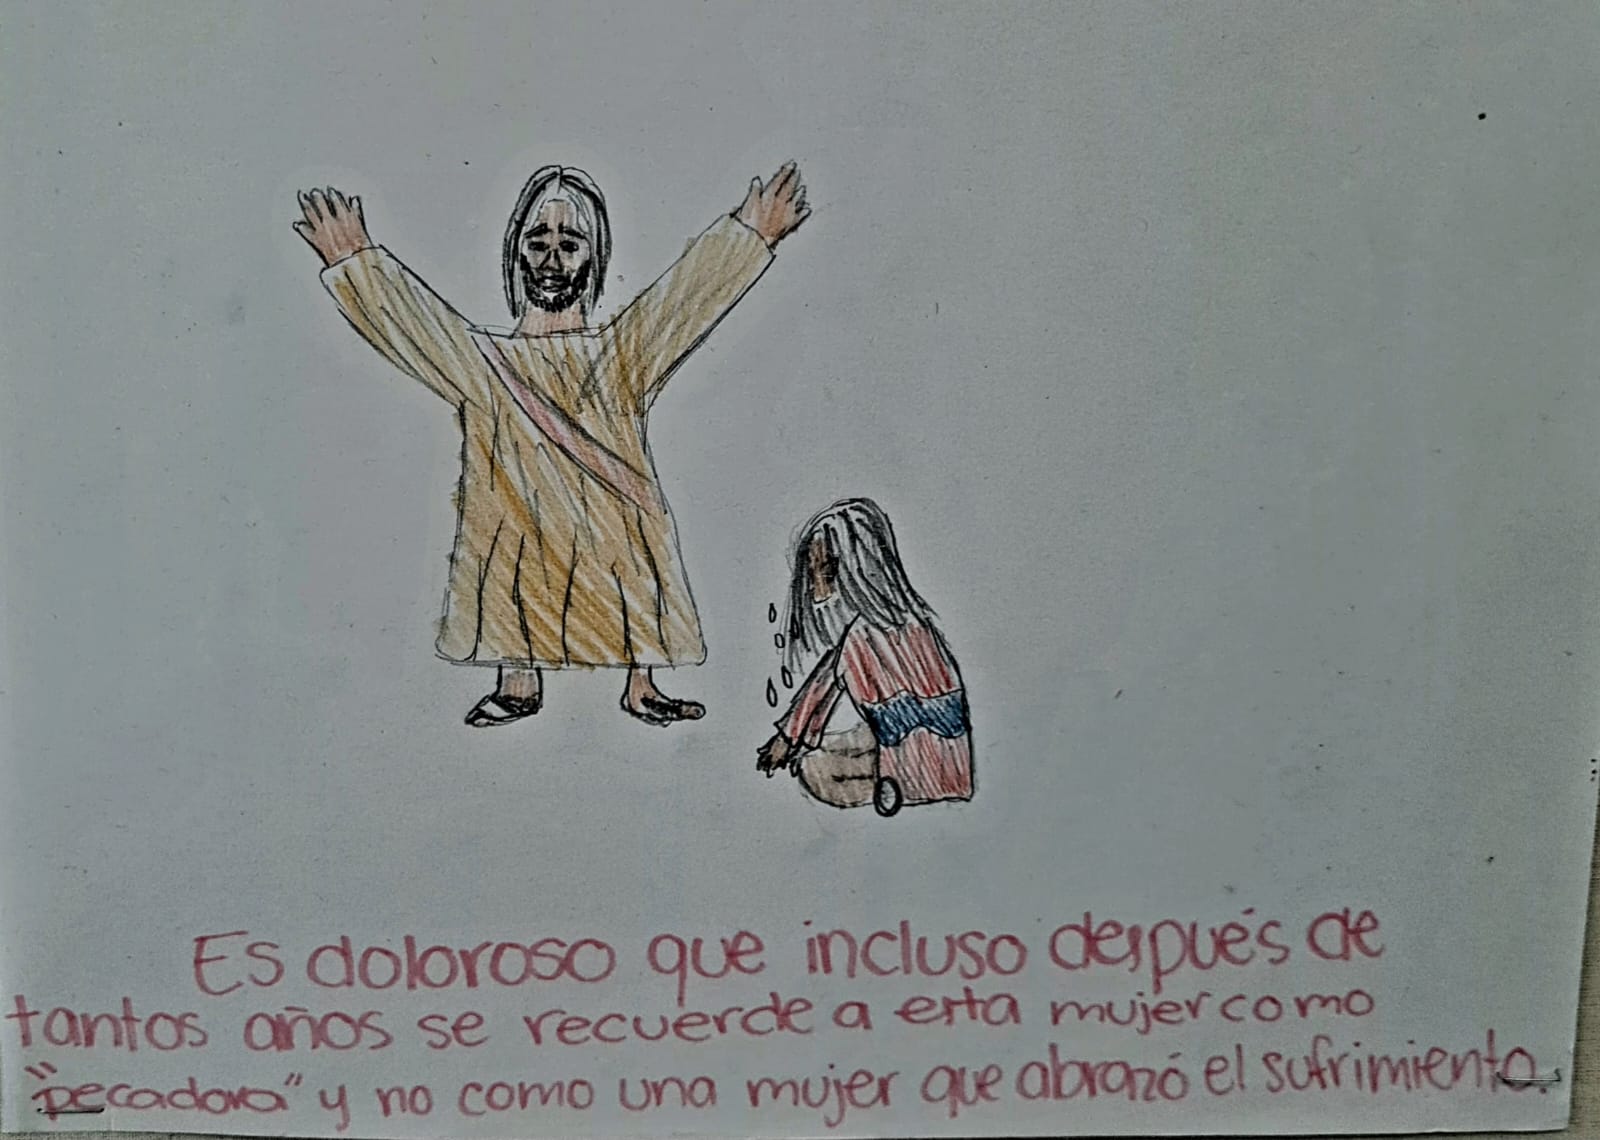 Es doloroso que incluso después de
tantos años se recuerde a esta mujer como
"pecadora" y no como una mujer que abrazó el sufrimiento.